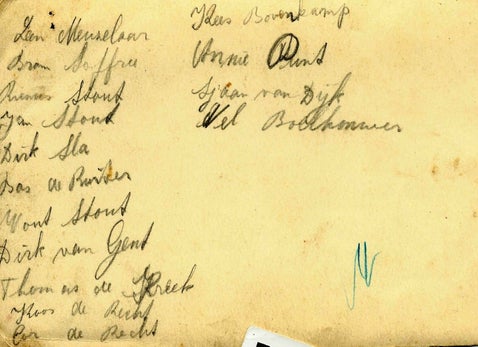 Len Meuzelaar
Bram Joffree
Rinus Stout
Jan Stout
Dirk Sla
Bas de Ruiter
Wout Stout
Dirk van Gent
Thomas de Kreek
Koos de Recht
Cor de Recht
Kees Bovenkamp
Annie Punt
Sjaan van Dijk
Nel Boelhouwer